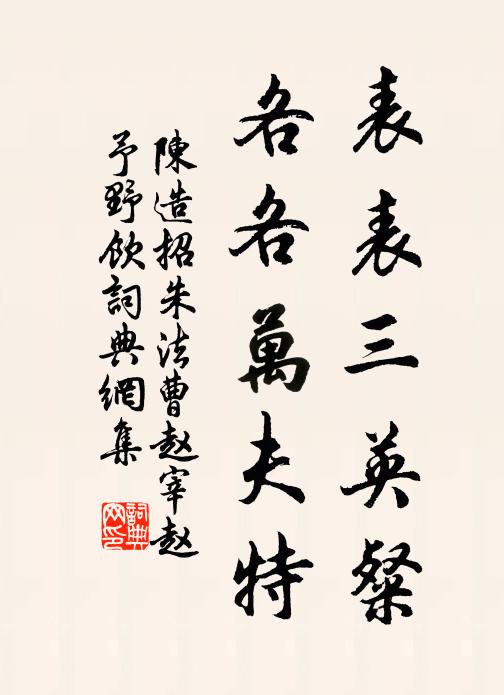 表表三英粲
各各萬夫特
陳造招朱法曹赵宰赵
予野飲詞典網集
詞典
网印